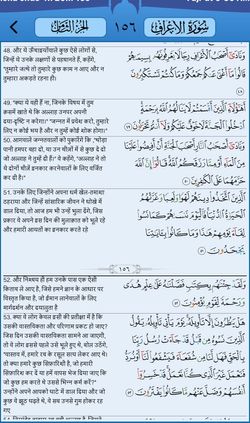 سُورَةُ الأَعْرَافِ
١٥٦
الجزء الثامن
48. और ये ऊँचाइयोंवाले कुछ ऐसे लोगों से,
जिन्हें ये उनके लक्षणों से पहचानते हैं, कहेंगे,
"तुम्हारे जत्थे तो तुम्हारे कुछ काम न आए और न
तुम्हारा अकड़ते रहना ही।
وَنَادَىٰٓ أَصْحَٰبُ ٱلْأَعْرَافِ رِجَالًا يَعْرِفُونَهُم بِسِيمَىٰهُمْ
قَالُوا۟ مَآ أَغْنَىٰ عَنكُمْ جَمْعُكُمْ وَمَا كُنتُمْ تَسْتَكْبِرُونَ
49. "क्या ये वही हैं ना, जिनके विषय में तुम
क़समें खाते थे कि अल्लाह उनपर अपनी
दया-दृष्टि न करेगा।" "जन्नत में प्रवेश करो, तुम्हारे
लिए न कोई भय है और न तुम्हें कोई शोक होगा।"
أَهَٰٓؤُلَآءِ ٱلَّذِينَ أَقْسَمْتُمْ لَا يَنَالُهُمُ ٱللَّهُ بِرَحْمَةٍ
ٱدْخُلُوا۟ ٱلْجَنَّةَ لَا خَوْفٌ عَلَيْكُمْ وَلَآ أَنتُمْ تَحْزَنُونَ
50. आगवाले जन्नतवालों को पुकारेंगे कि, "थोड़ा
पानी हमपर बहा दो, या उन चीज़ों में से कुछ दे दो
जो अल्लाह ने तुम्हें दी हैं।" वे कहेंगे, "अल्लाह ने तो
ये दोनों चीज़ें इनकार करनेवालों के लिए वर्जित
कर दी हैं।"
وَنَادَىٰٓ أَصْحَٰبُ ٱلنَّارِ أَصْحَٰبَ ٱلْجَنَّةِ أَنْ أَفِيضُوا۟ عَلَيْنَا
مِنَ ٱلْمَآءِ أَوْ مِمَّا رَزَقَكُمُ ٱللَّهُ قَالُوٓا۟ إِنَّ ٱللَّهَ
حَرَّمَهُمَا عَلَى ٱلْكَٰفِرِينَ
51. उनके लिए जिन्होंने अपना धर्म खेल-तमाशा
ठहराया और जिन्हें सांसारिक जीवन ने धोखे में
डाल दिया, तो आज हम भी उन्हें भुला देंगे, जिस
प्रकार वे अपने इस दिन की मुलाक़ात को भूले रहे
और हमारी आयतों का इनकार करते रहे
ٱلَّذِينَ ٱتَّخَذُوا۟ دِينَهُمْ لَهْوًا وَلَعِبًا وَغَرَّتْهُمُ
ٱلْحَيَوٰةُ ٱلدُّنْيَا فَٱلْيَوْمَ نَنسَىٰهُمْ كَمَا نَسُوا۟
لِقَآءَ يَوْمِهِمْ هَٰذَا وَمَا كَانُوا۟ بِـَٔايَٰتِنَا
يَجْحَدُونَ
١٥٦
52. और निश्चय ही हम उनके पास एक ऐसी
किताब ले आए हैं, जिसे हमने ज्ञान के आधार पर
विस्तृत किया है, जो ईमान लानेवालों के लिए
मार्गदर्शन और दयालुता है
وَلَقَدْ جِئْنَٰهُم بِكِتَٰبٍ فَصَّلْنَٰهُ عَلَىٰ عِلْمٍ هُدًى
وَرَحْمَةً لِّقَوْمٍ يُؤْمِنُونَ
53. क्या वे लोग केवल इसी की प्रतीक्षा में हैं कि
उसकी वास्तविकता और परिणाम प्रकट हो जाए?
जिस दिन उसकी वास्तविकता सामने आ जाएगी,
तो वे लोग इससे पहले उसे भूले हुए थे, बोल उठेंगे,
"वास्तव में, हमारे रब के रसूल सत्य लेकर आए थे।
तो क्या हमारे कुछ सिफ़ारिशी हैं, जो हमारी
सिफ़ारिश कर दें या हमें वापस भेज दिया जाए कि
जो कुछ हम करते थे उससे भिन्न कर्म करें?"
उन्होंने अपने आपको घाटे में डाल दिया और जो
कुछ वे झूठ घढ़ते थे, वे सब उनसे गुम होकर रह
गए
هَلْ يَنظُرُونَ إِلَّا تَأْوِيلَهُۥ يَوْمَ يَأْتِى تَأْوِيلُهُۥ يَقُولُ
ٱلَّذِينَ نَسُوهُ مِن قَبْلُ قَدْ جَآءَتْ رُسُلُ رَبِّنَا
بِٱلْحَقِّ فَهَل لَّنَا مِن شُفَعَآءَ فَيَشْفَعُوا۟ لَنَآ أَوْ نُرَدُّ
فَنَعْمَلَ غَيْرَ ٱلَّذِى كُنَّا نَعْمَلُ قَدْ خَسِرُوٓا۟
أَنفُسَهُمْ وَضَلَّ عَنْهُم مَّا كَانُوا۟ يَفْتَرُونَ